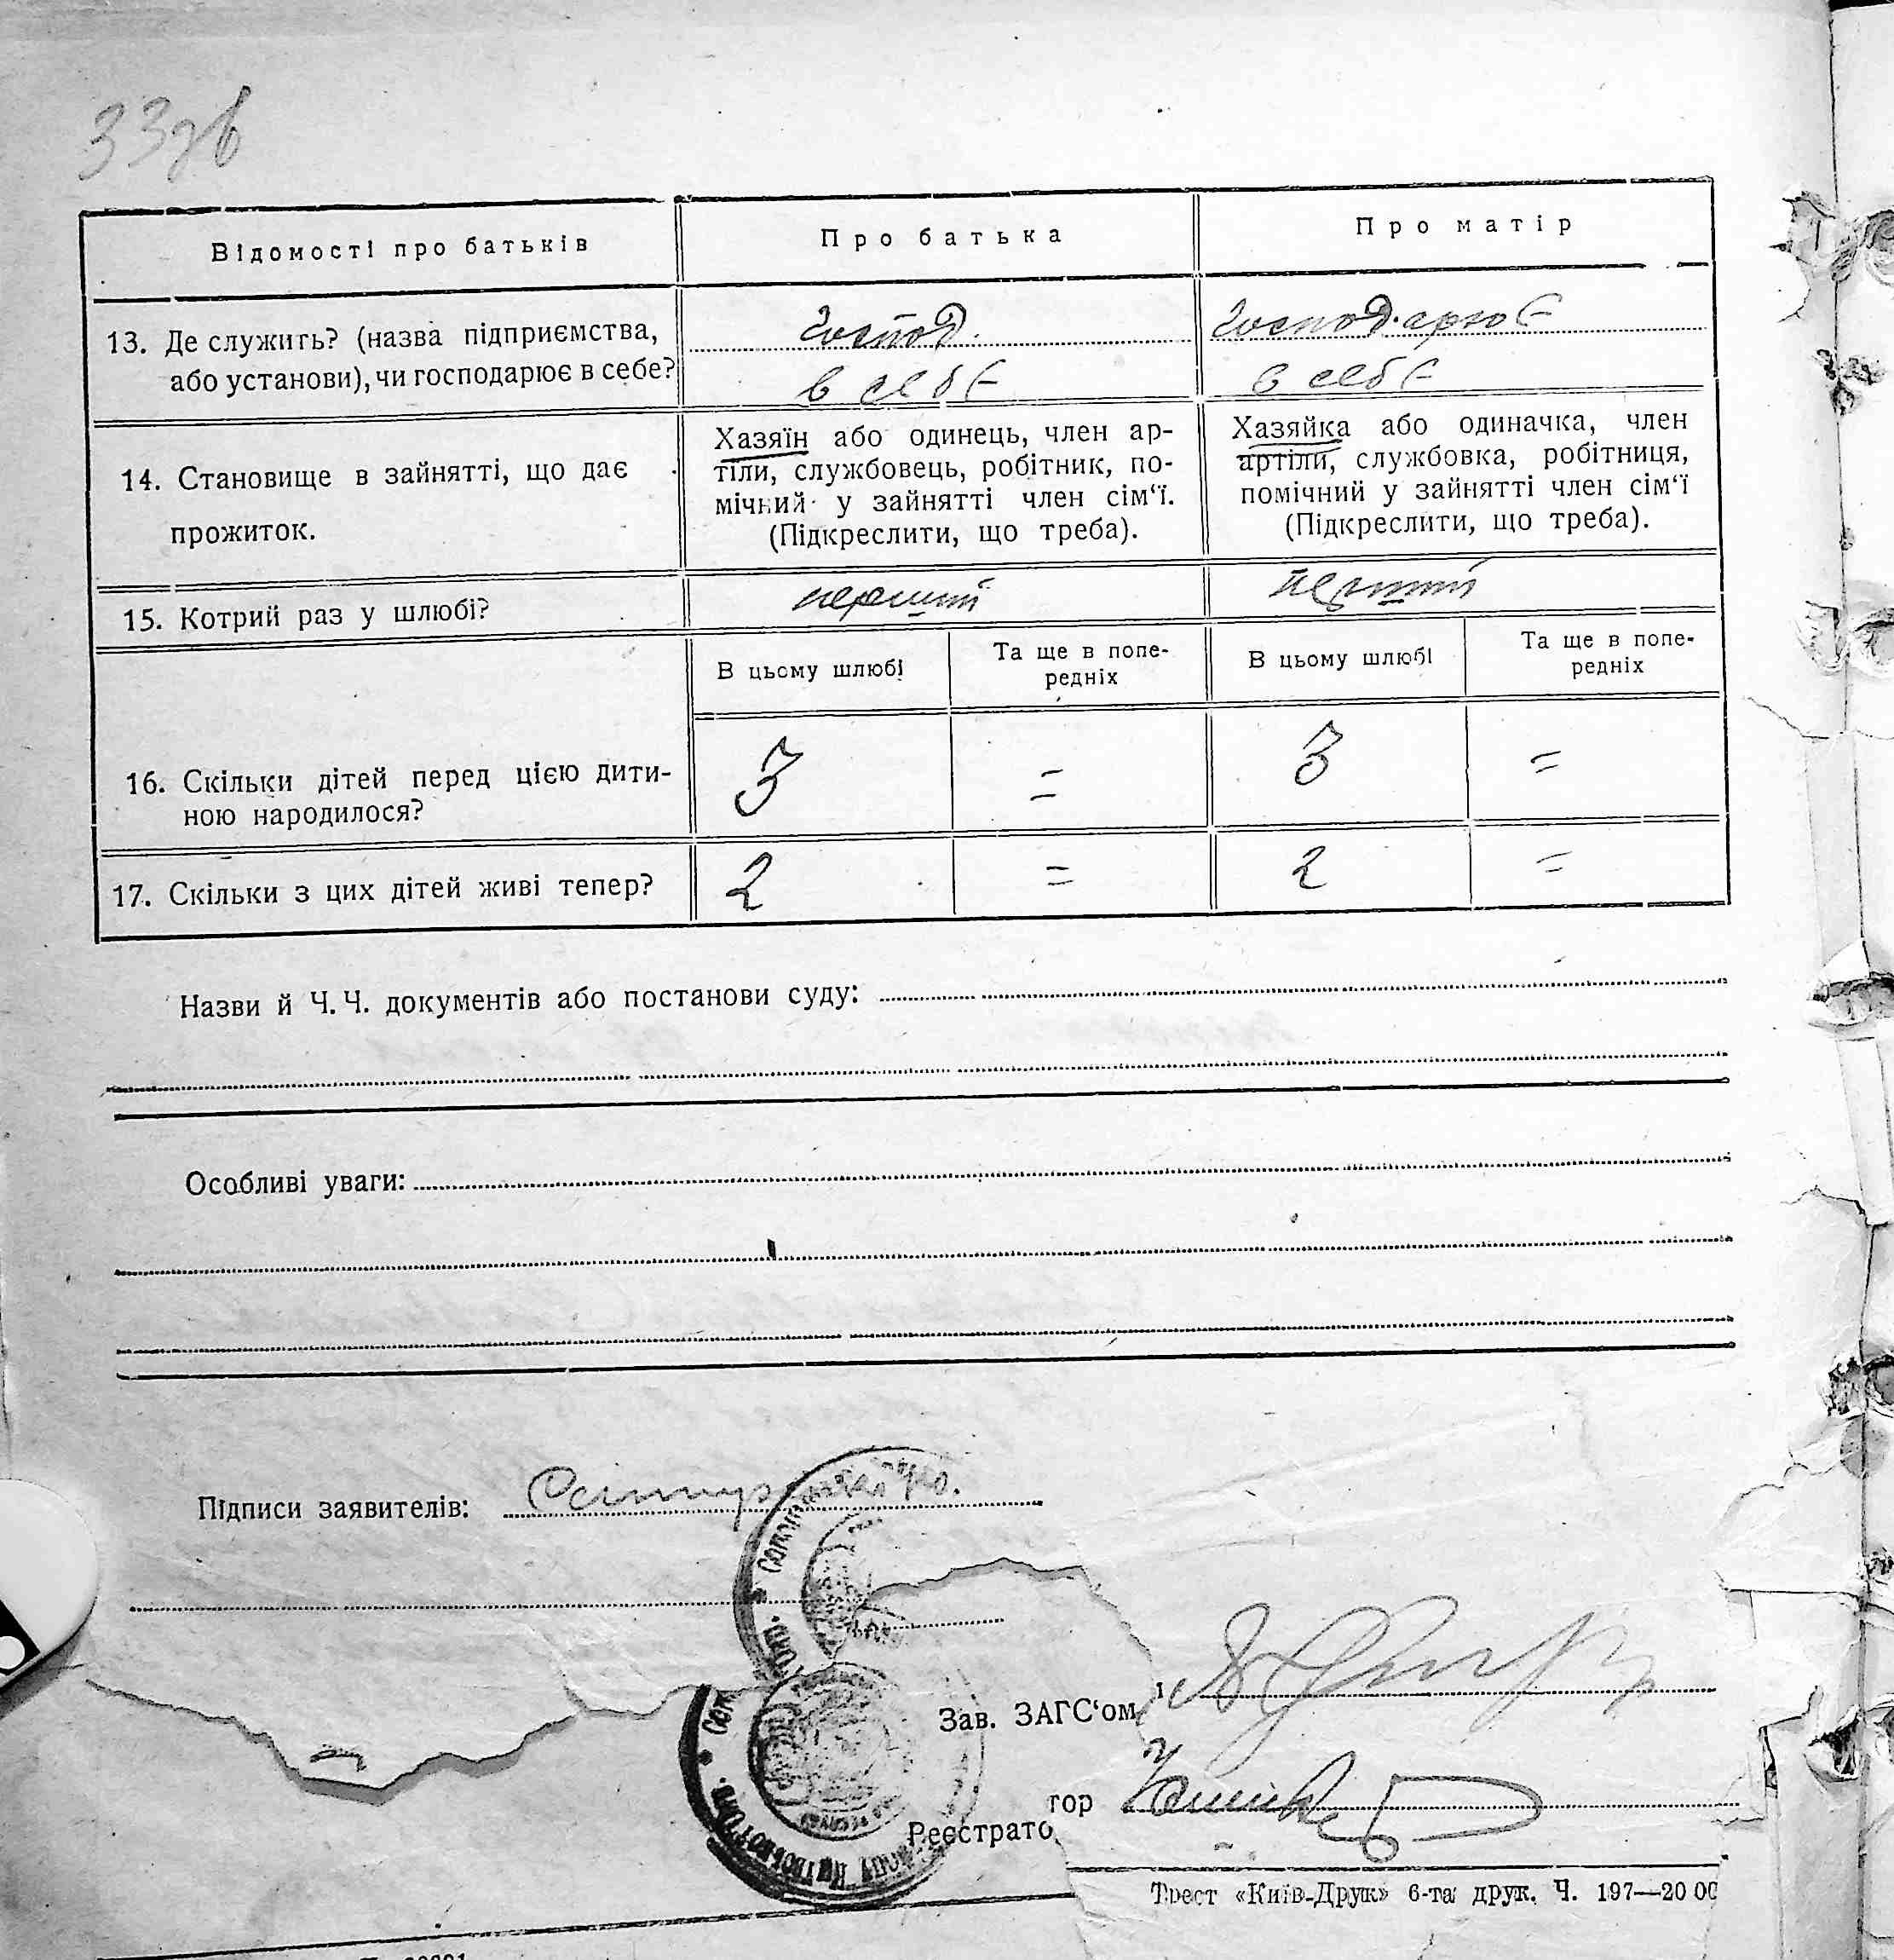 33зв
Відомості про батьків
Про батька
Про матір
13. Де служить? (назва підприємства,
або установи), чи господарює в себе?
Господ.
в себе
господарює
в себе
14. Становище в зайнятті, що дає
прожиток.
Хазяїн або одинець, член ар-
тіли, службовець, робітник, по-
мічний у зайнятті член сім‘ї.
(Підкреслити, що треба).
Хазяйка або одиначка, член
артіли, службовка, робітниця,
помічний у зайнятті член сім‘ї
(Підкреслити, що треба).
15. Котрий раз у шлюбі?
перший
перший
В цьому шлюбі
Та ще в попе-
редніх
В цьому шлюбі
Та ще в попе-
редніх
16. Скільки дітей перед цією дити-
ною народилося?
3
=
3
=
17. Скільки з цих дітей живі тепер?
2
=
2
=
Назви й Ч. Ч. документів або постанови суду:
Особливі уваги:
Підписи заявителів:
Зав. ЗАГС‘ом
тор
Реєстрато
Трест «Київ-Друк» 6-та друк. Ч. 197—20 00